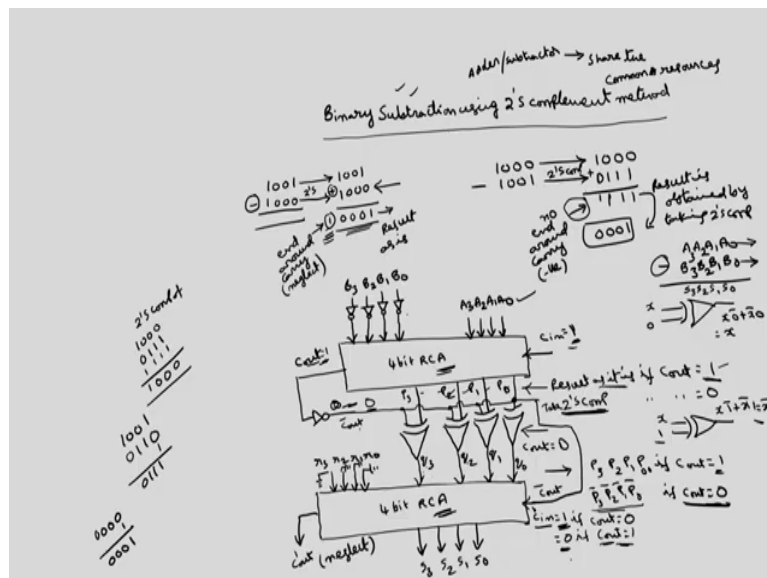 Adder/subtractor → share the
common resources
Binary Subtraction using 2's complement method
1001 → 1001
- 1000 2's → + 1000
1 0001 → Result as is
end around carry (neglect)
1000 → 1000
- 1001 2's comp → + 0111
1111
no end around carry (-ve)
Result is obtained by taking 2's comp
0001
A3A2A1A0
- B3B2B1B0
S3S2S1S0
x
0
x0̅+x̅0
= x
2's comp of
1000
0111
1
1000
1001
0110
1
0111
0000
1
0001
B3 B2 B1 B0
A3A2A1A0
4 bit RCA
Cin=1
Cout=1
0
C̅out
P3 P2 P1 P0
Result as it is if Cout = 1
" " = 0
Take 2's comp
x
1
x1̅+x̅1=x̅
Cout=0
r3 r2 r1 r0
q3 q2 q1 q0
P3 P2 P1 P0 if Cout=1
P̅3 P̅2 P̅1 P̅0 if Cout=0
4 bit RCA
C̅out
Cin=1 if Cout=0
=0 if Cout=1
Cout (neglect)
S3 S2 S1 S0